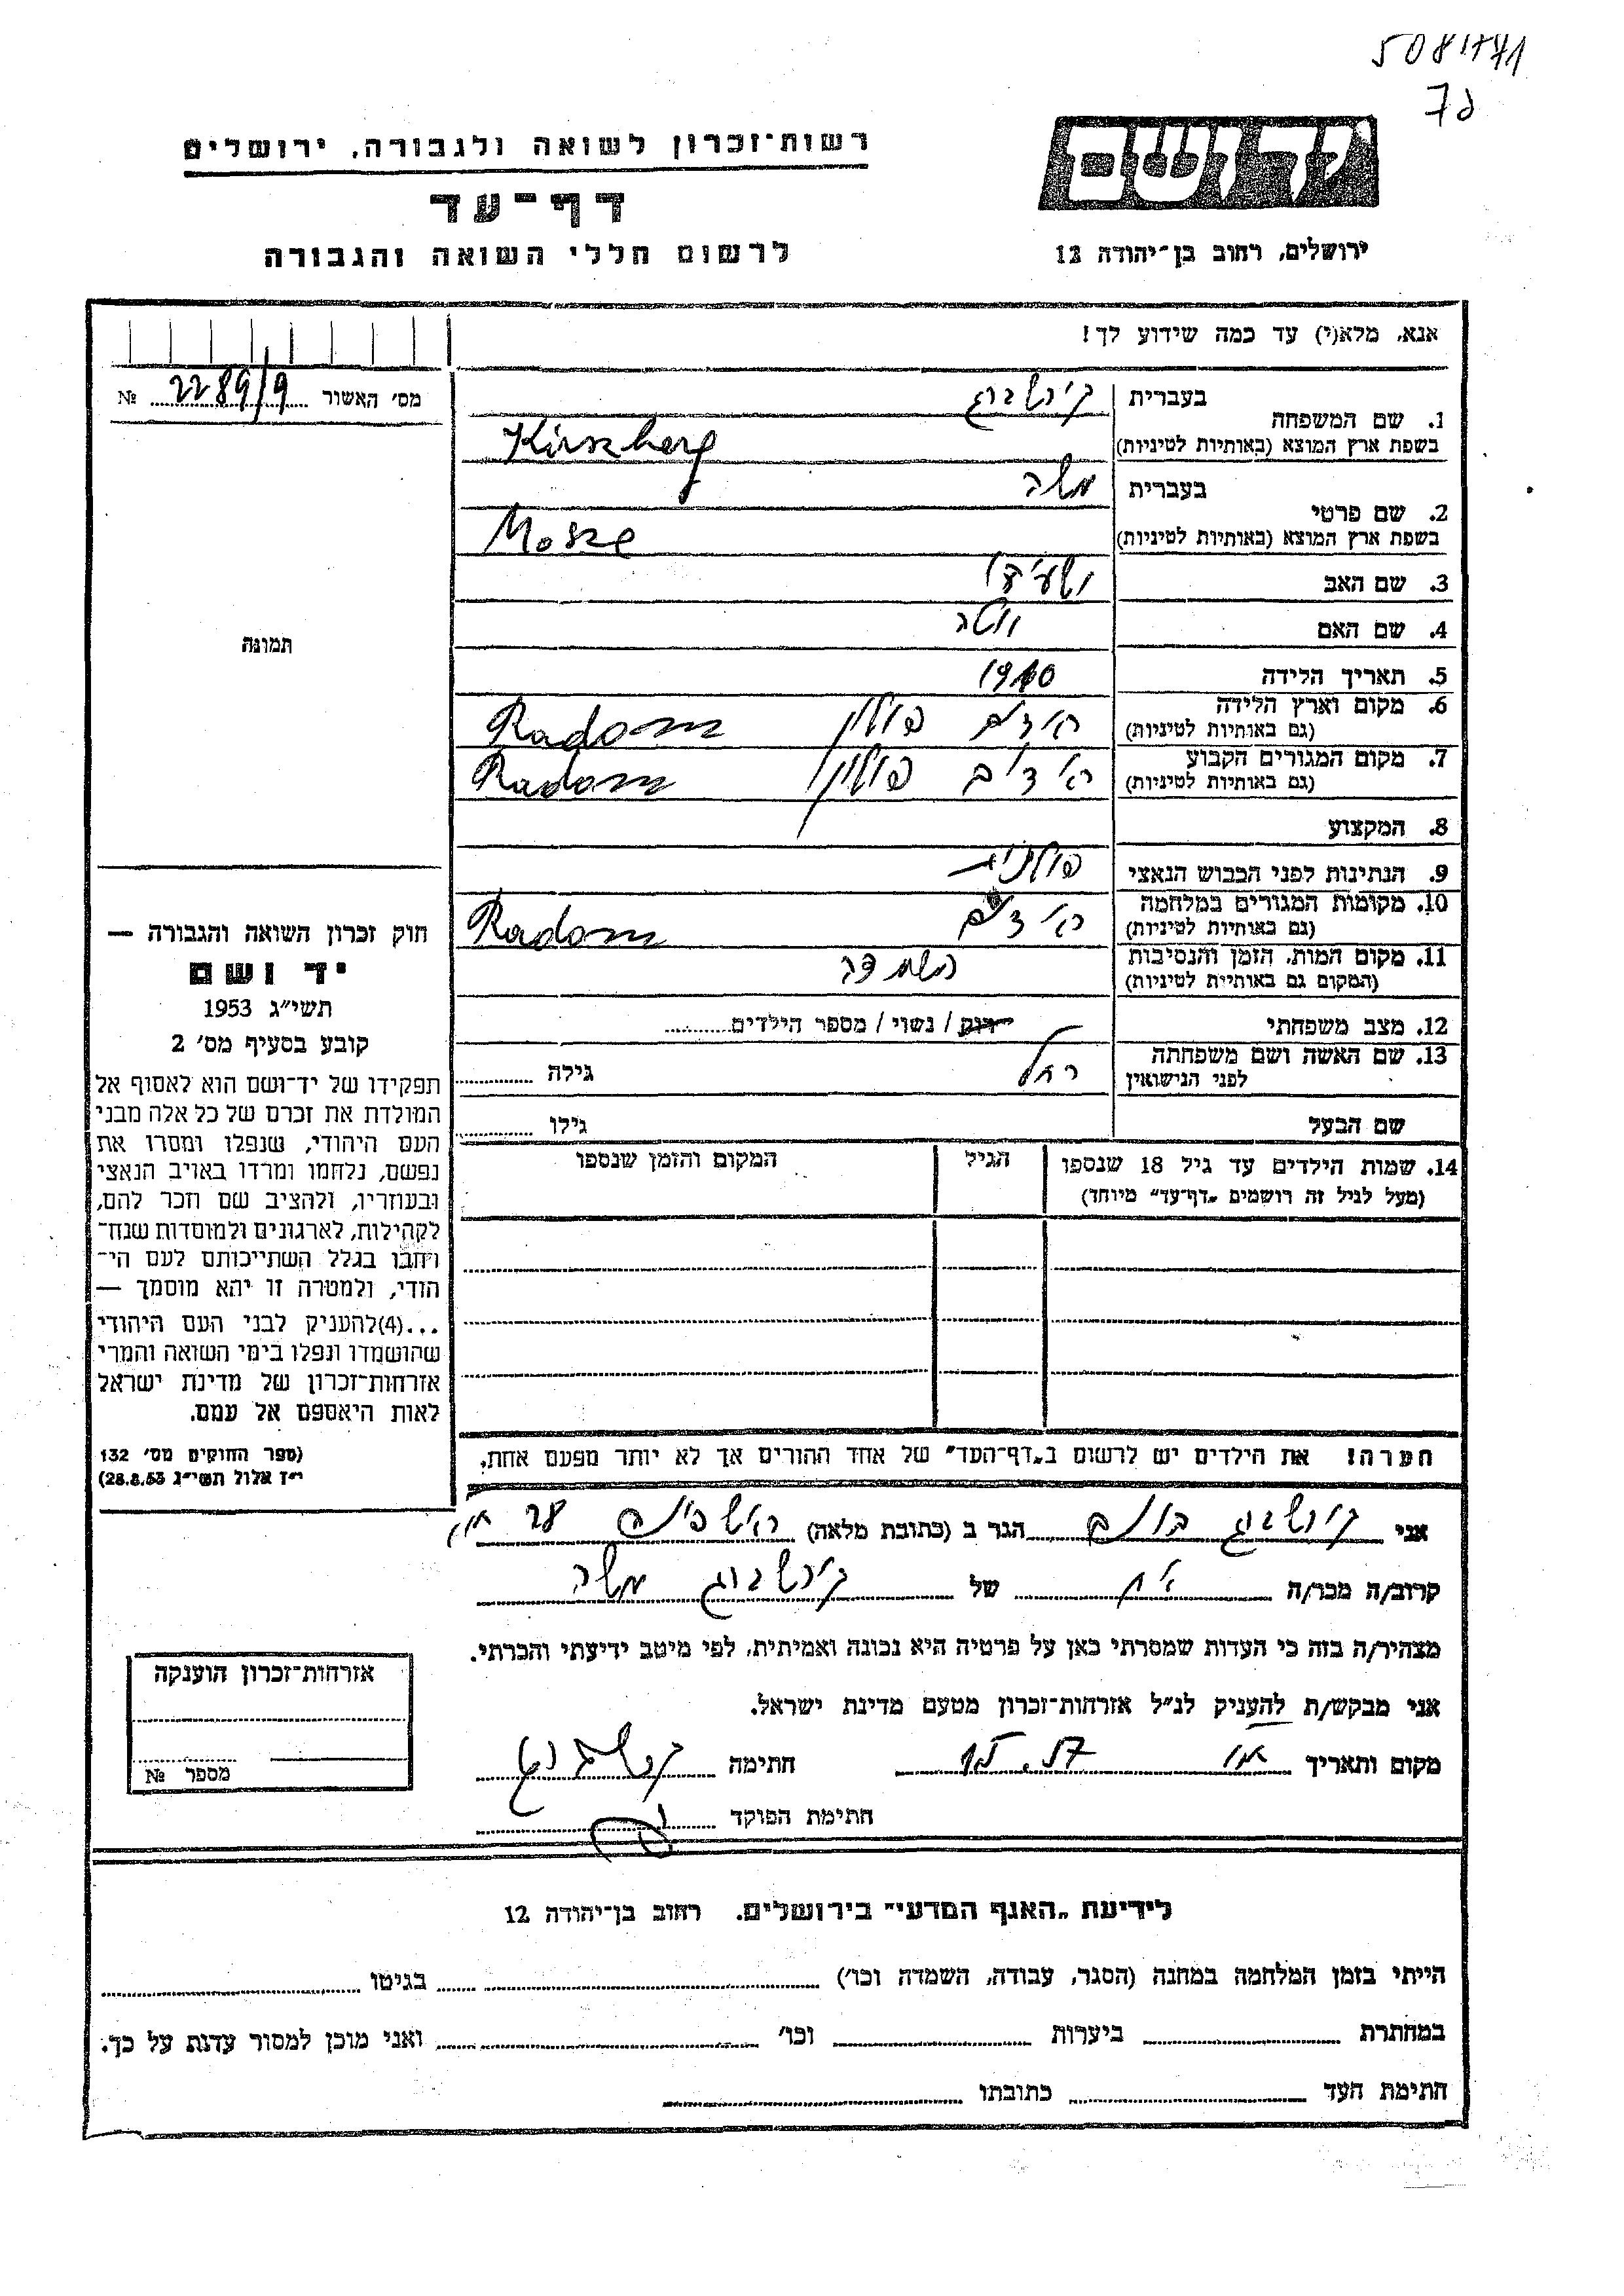 7ג
רשות־זכרון לשואה ולגבורה, ירושלים
יד ושם
דף־עד
לרשום חללי השואה והגבורה
ירושלים, רחוב בן־יהודה 12
אנא, מלא(י) עד כמה שידוע לך!
מס׳ האשור 2289/9 №
1. שם המשפחה
בעברית קירשברג
בשפת ארץ המוצא (באותיות לטיניות) Kirszberg
2. שם פרטי
בעברית משה
בשפת ארץ המוצא (באותיות לטיניות) Mosze
3. שם האב
4. שם האם
5. תאריך הלידה 1910
6. מקום וארץ הלידה
(גם באותיות לטיניות) רדום פולין Radom
7. מקום המגורים הקבוע
(גם באותיות לטיניות) פולין Radom
8. המקצוע
9. הנתינות לפני הכבוש הנאצי פולנית
10. מקומות המגורים במלחמה
(גם באותיות לטיניות) Radom
11. מקום המות, הזמן והנסיבות
(המקום גם באותיות לטיניות) השמדה
12. מצב משפחתי רוק / נשוי / מספר הילדים
13. שם האשה ושם משפחתה
לפני הנישואין רחל גילה
שם הבעל גילו
14. שמות הילדים עד גיל 18 שנספו
(מעל לגיל זה רושמים „דף־עד" מיוחד)
הגיל
המקום והזמן שנספו
הערה! את הילדים יש לרשום ב„דף־העד" של אחד ההורים אך לא יותר מפעם אחת.
תמונה
חוק זכרון השואה והגבורה —
יד ושם
תשי״ג 1953
קובע בסעיף מס׳ 2
תפקידו של יד־ושם הוא לאסוף אל
המולדת את זכרם של כל אלה מבני
העם היהודי, שנפלו ומסרו את
נפשם, נלחמו ומרדו באויב הנאצי
ובעוזריו, ולהציב שם וזכר להם,
לקהילות, לארגונים ולמוסדות שנח־
רבו בגלל השתייכותם לעם הי־
הודי, ולמטרה זו יהא מוסמך —
...(4)להעניק לבני העם היהודי
שהושמדו ונפלו בימי השואה והמרי
אזרחות־זכרון של מדינת ישראל
לאות היאספם אל עמם.
(ספר החוקים מס׳ 132
י״ז אלול תשי״ג 28.8.53)
אני קירשברג הגר ב (כתובת מלאה)
קרוב/ה מכר/ה אח של קירשברג משה
מצהיר/ה בזה כי העדות שמסרתי כאן על פרטיה היא נכונה ואמיתית, לפי מיטב ידיעתי והכרתי.
אני מבקש/ת להעניק לנ״ל אזרחות־זכרון מטעם מדינת ישראל.
מקום ותאריך חתימה
חתימת הפוקד
אזרחות־זכרון הוענקה
מספר №
לידיעת „האגף המדעי" בירושלים. רחוב בן־יהודה 12
הייתי בזמן המלחמה במחנה (הסגר, עבודה, השמדה וכו׳) בגיטו
במחתרת ביערות וכו׳ ואני מוכן למסור עדות על כך.
חתימת העד כתובתו